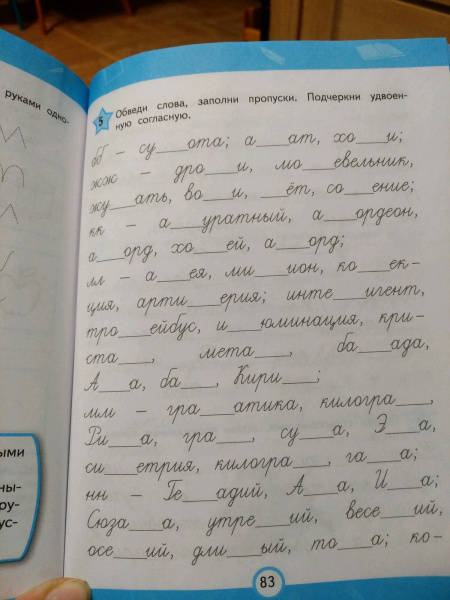 руками одно-
5 Обведи слова, заполни пропуски. Подчеркни удвоен-
ную согласную.
бб – су___ота; а___ат, хо___и;
жж – дро___и, мо___евельник,
жу___ать, во___и, ___ёт, со___ение;
кк – а___уратный, а___ордеон,
а___орд, хо___ей, а___орд;
лл – а___ея, ми___ион, ко___ек-
ция, арти___ерия; инте___игент,
тро___ейбус, и___юминация, кри-
ста___, мета___, ба___ада,
А___а, ба___, Кири___;
мм – гра___атика, килогра___,
Ри___а, гра___, су___а, Э___а,
си___етрия, килогра___, га___а;
нн – Ге___адий, А___а, И___а;
Сюза___а, утре___ий, весе___ий,
осе___ий, дли___ый, то___а; ко-
ыми
ны-
ру-
ус-
83